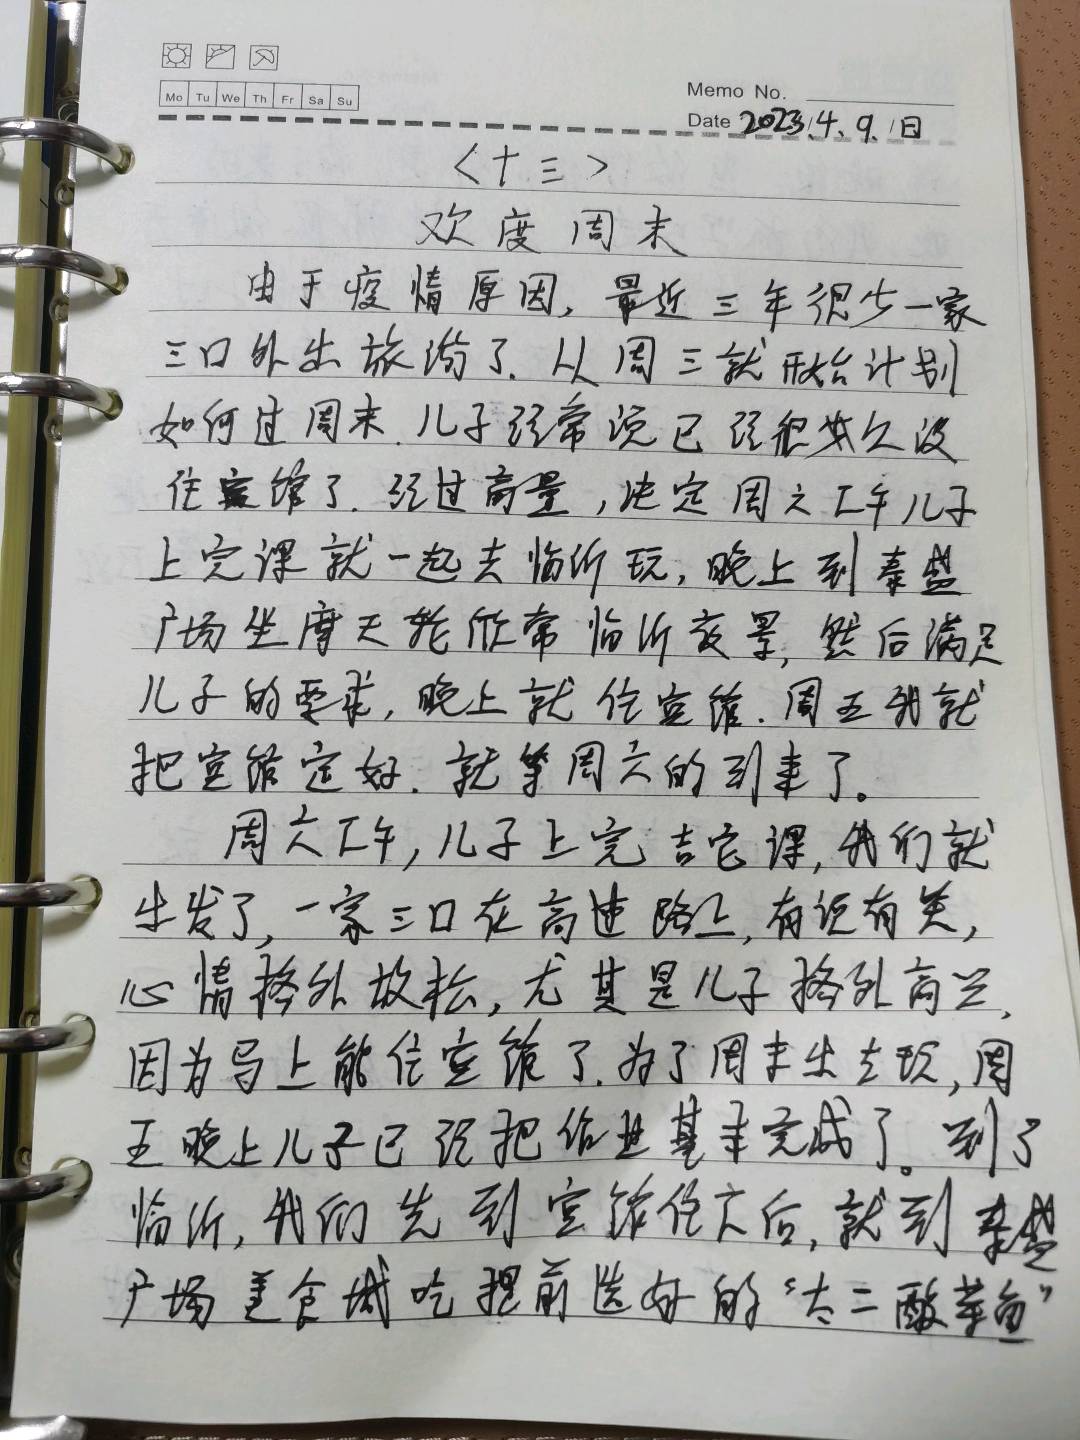 Mo Tu We Th Fr Sa Su
Memo No.
Date 2023.4.9.日
<十三>
欢度周末
由于疫情原因,最近三年很少一家
三口外出旅游了.从周三就开始计划
如何过周末.儿子经常说已经很久没
住宾馆了.经过商量,决定周六下午儿子
上完课就一起去临沂玩,晚上到泰盛
广场坐摩天轮欣赏临沂夜景,然后满足
儿子的要求,晚上就住宾馆.周五我就
把宾馆定好.就等周六的到来了。
周六下午,儿子上完吉它课,我们就
出发了,一家三口在高速路上,有说有笑,
心情格外放松,尤其是儿子格外高兴,
因为马上能住宾馆了.为了周末出去玩,周
五晚上儿子已经把作业基本完成了。到了
临沂,我们先到宾馆住下后,就到泰盛
广场美食城吃提前选好的“太二酸菜鱼”